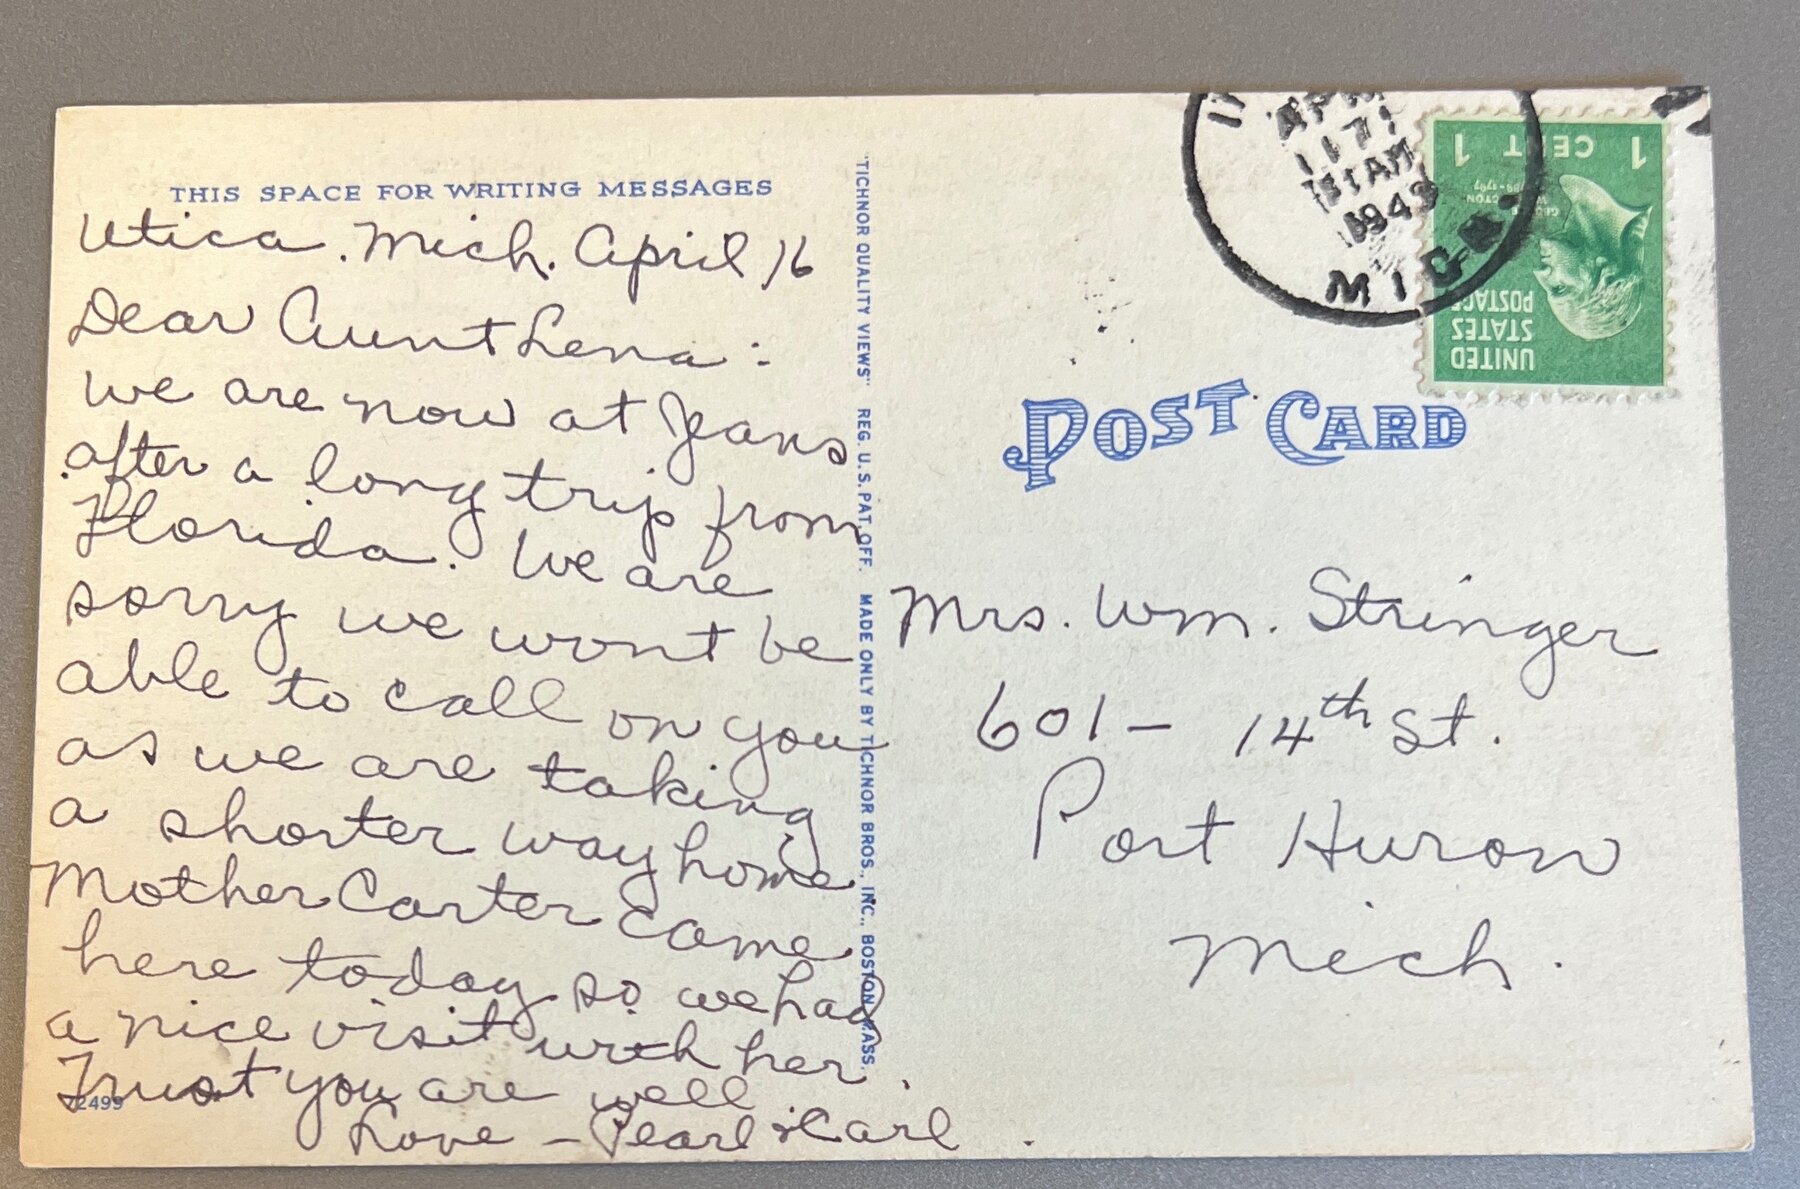 THIS SPACE FOR WRITING MESSAGES
Utica. Mich. April 16
Dear Aunt Lena:
We are now at Jeans
after a long trip from
Florida. We are
sorry we wont be
able to call on you
as we are taking
a shorter way home
Mother Carter came
here today so we had
a nice visit with her.
Trust you are well
Love - Pearl & Carl.
72499
"TICHNOR QUALITY VIEWS" REG. U.S. PAT. OFF. MADE ONLY BY TICHNOR BROS., INC., BOSTON, MASS.
APR
17
AM
1943
MICH.
1 CENT 1
UNITED
STATES
POSTAGE
POST CARD
Mrs. Wm. Stringer
601- 14th St.
Port Huron
Mich.